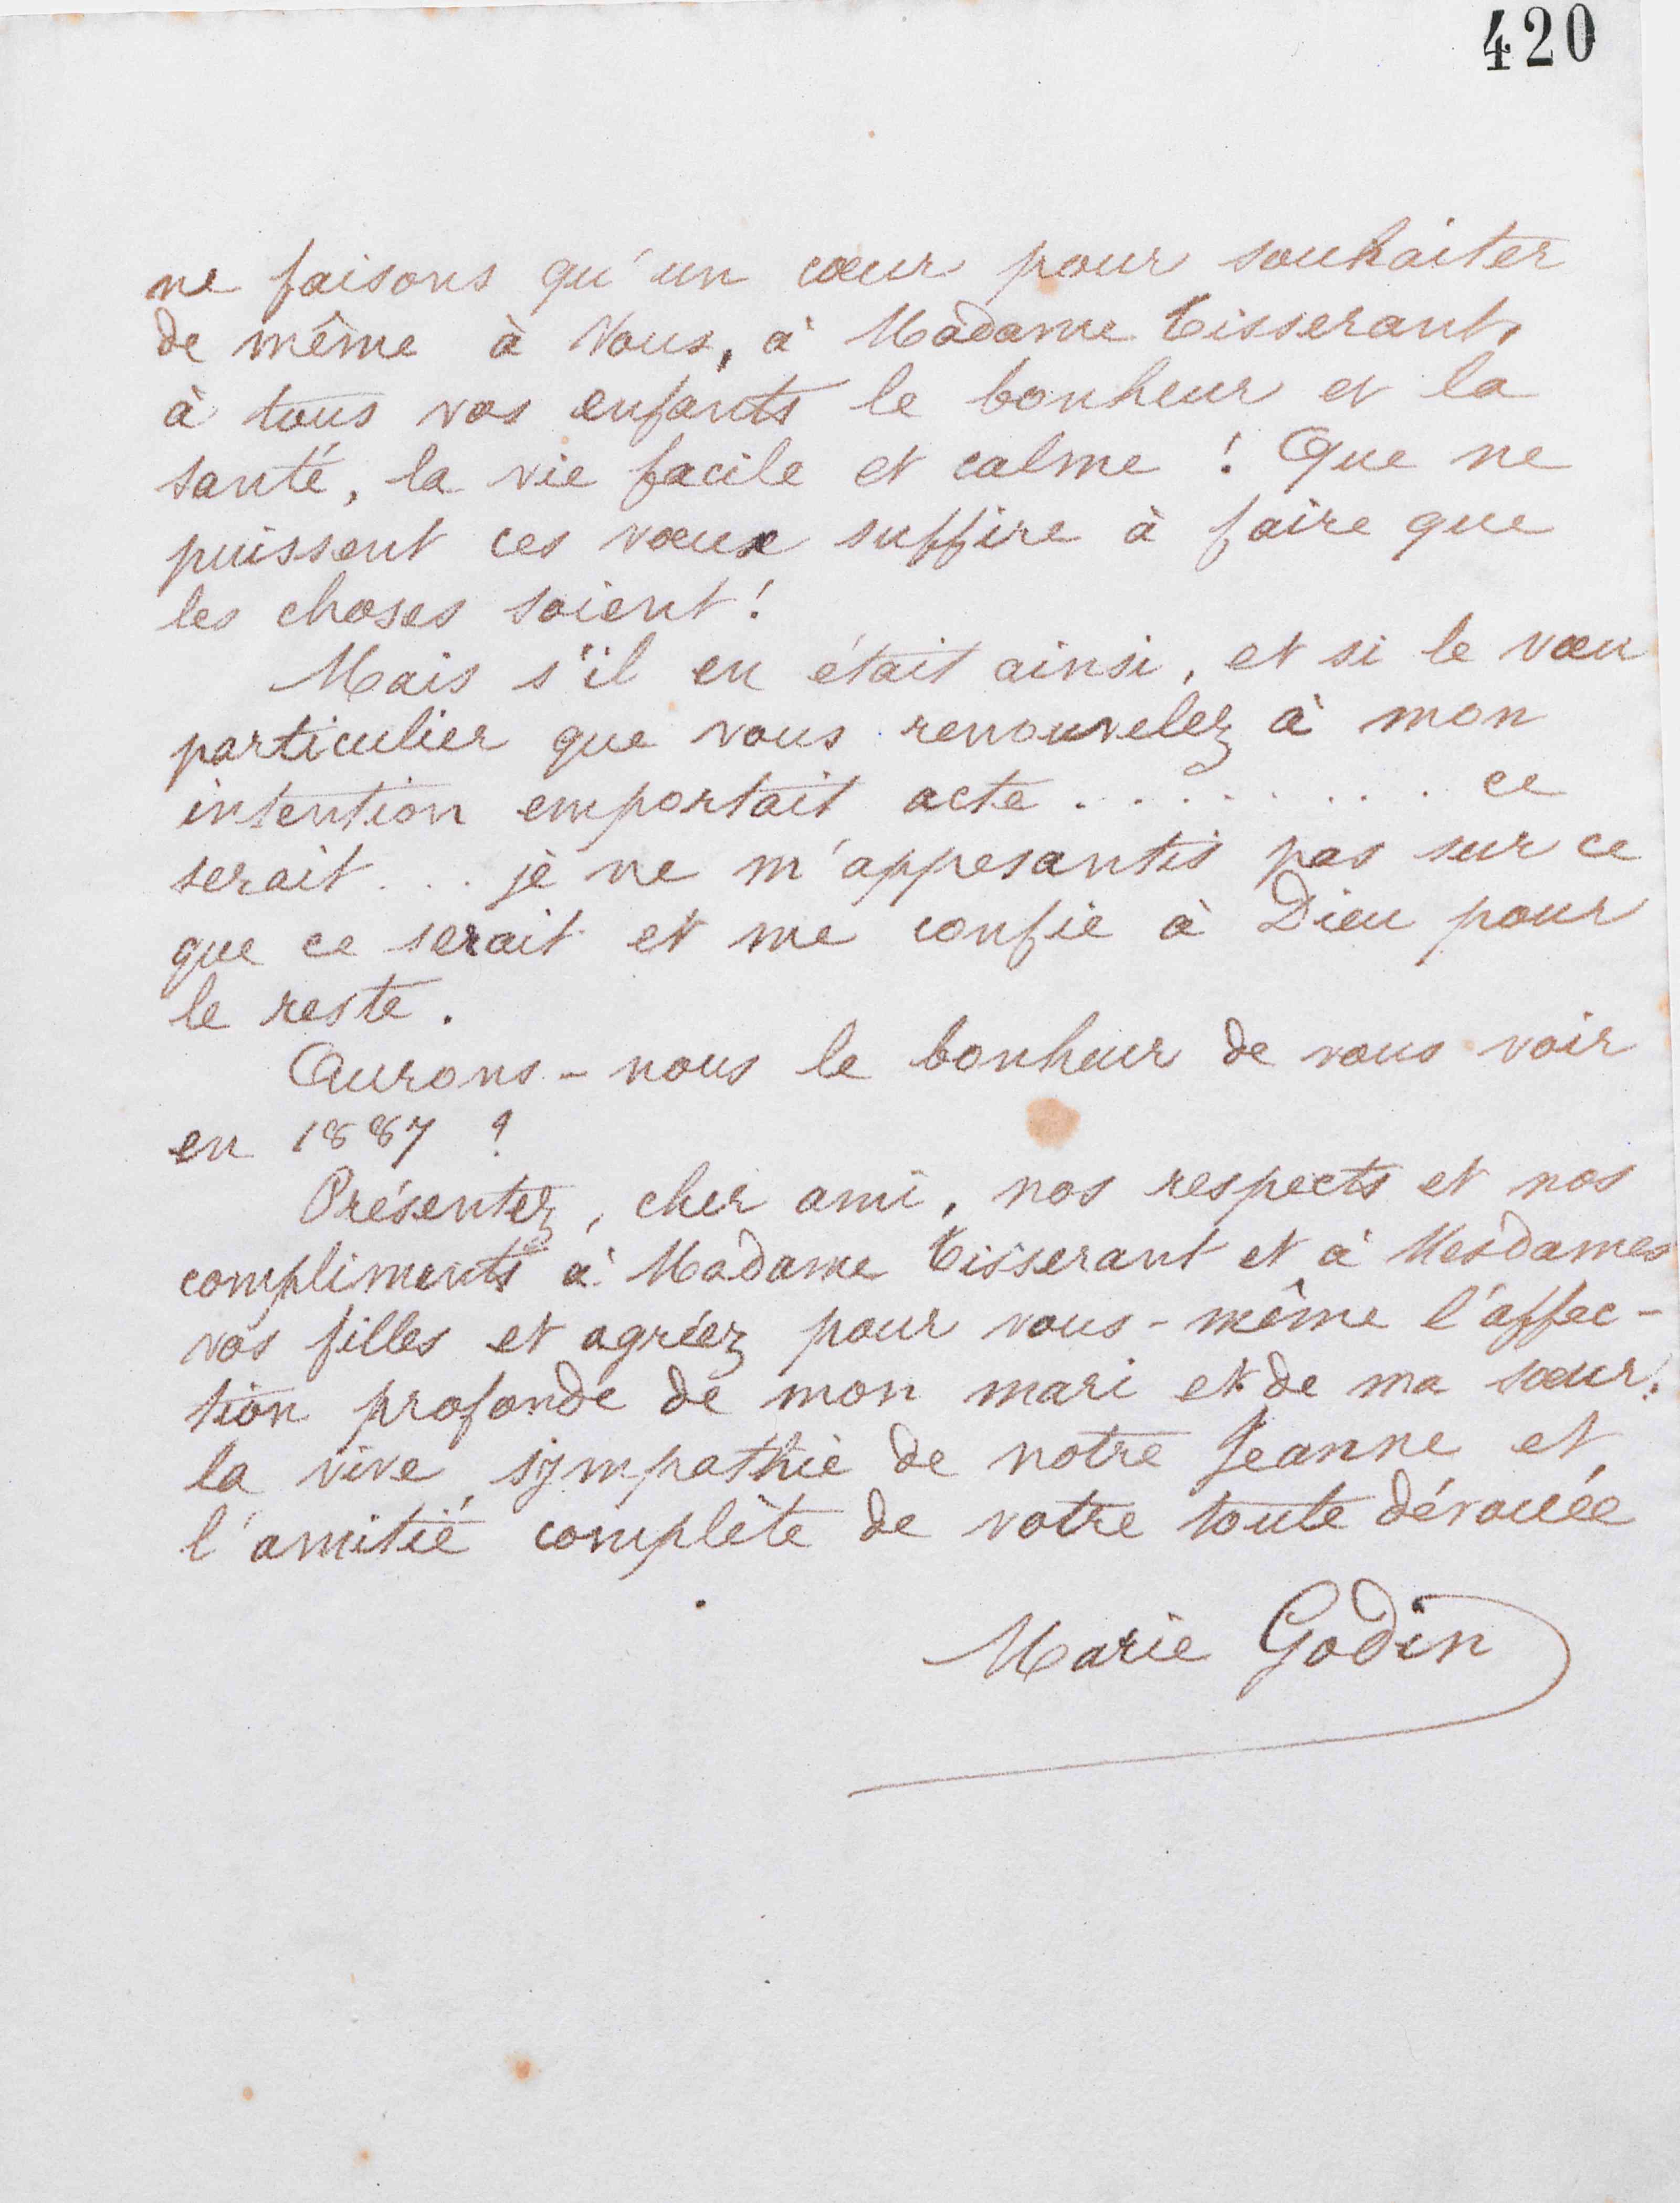 420
ne faisons qu'un cœur pour souhaiter
de même à Vous, à Madame Tisserant,
à tous vos enfants le bonheur et la
santé, la vie facile et calme ! Que ne
puissent ces vœux suffire à faire que
les choses soient !
Mais s'il en était ainsi, et si le vœu
particulier que vous renouvelez à mon
intention emportait acte . . . . . . . . ce
serait . . . je ne m'appesantis pas sur ce
que ce serait et me confie à Dieu pour
le reste.
Aurons-nous le bonheur de vous voir
en 1887 ?
Présentez, cher ami, nos respects et nos
compliments à Madame Tisserant et à Mesdames
vos filles et agréez pour vous-même l'affec-
tion profonde de mon mari et de ma sœur,
la vive sympathie de notre Jeanne et
l'amitié complète de votre toute dévouée
Marie Godin